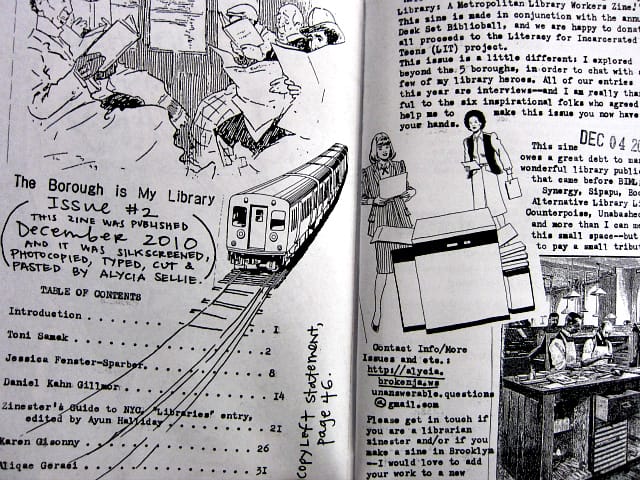 The Borough is My Library
ISSUE #2
THIS ZINE WAS PUBLISHED
December 2010
AND IT WAS SILKSCREENED,
PHOTOCOPIED, TYPED, CUT &
PASTED BY ALYCIA SELLIE.
TABLE OF CONTENTS
Introduction . . . 1
Toni Samek . . . 2
Jessica Fenster-Sparber . . . 8
Daniel Kahn Gillmor . . . 14
Zinester's Guide to NYC, "Libraries" entry,
edited by Ayun Halliday . . . 21
Karen Gisonny . . . 26
Alique Gerasi . . . 31
copyleft statement,
page 46.
Library: A Metropolitan Library Workers Zine.
This zine is made in conjunction with the ann
Desk Set Biblioball, and we are happy to dona
all proceeds to the Literacy for Incarcerated
Teens (LIT) project.
This issue is a little different; I explored
beyond the 5 boroughs, in order to chat with
few of my library heroes. All of our entries
this year are interviews--and I am really than
ful to the six inspirational folks who agreed
help me to make this issue you now have
your hands.
DEC 04 20
This zine
owes a great debt to ma
wonderful library public
that came before BIML,
Synergy, Sipapu, Boo
Alternative Library Li
Counterpoise, Unabashe
and more than I can me
this small space--but
to pay a small tribut
Contact Info/More
Issues and etc.:
http://alycia.
brokenja.ws
unanswerable.questions
@gmail.com
Please get in touch if
you are a librarian
zinester and/or if you
make a zine in Brooklyn
--I would love to add
your work to a new